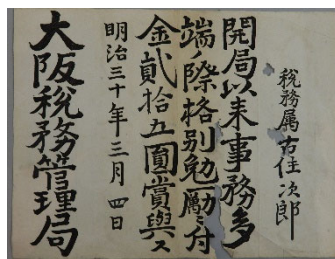 税務属 古住次郎
開局以来事務多
端ノ際格別勉励ニ付
金貮拾五圓賞與ス
明治三十年三月四日
大阪税務管理局